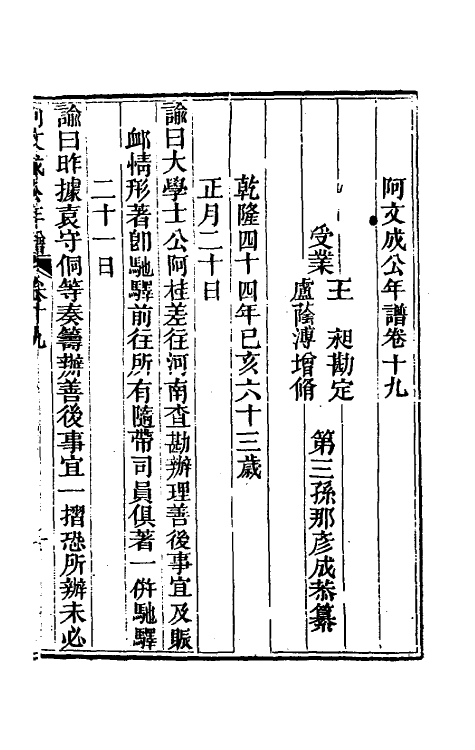 阿文成公年譜卷十九
第三孫那彥成恭纂
受業
王昶勘定
盧蔭溥增脩
乾隆四十四年己亥六十三歲
正月二十日
諭曰大學士公阿桂差往河南查勘辦理善後事宜及賑
卹情形著卽馳驛前往所有隨帶司員俱著一併馳驛
二十一日
諭曰昨據袁守侗等奏籌辦善後事宜一摺恐所辦未必
阿文成公年譜 卷十九